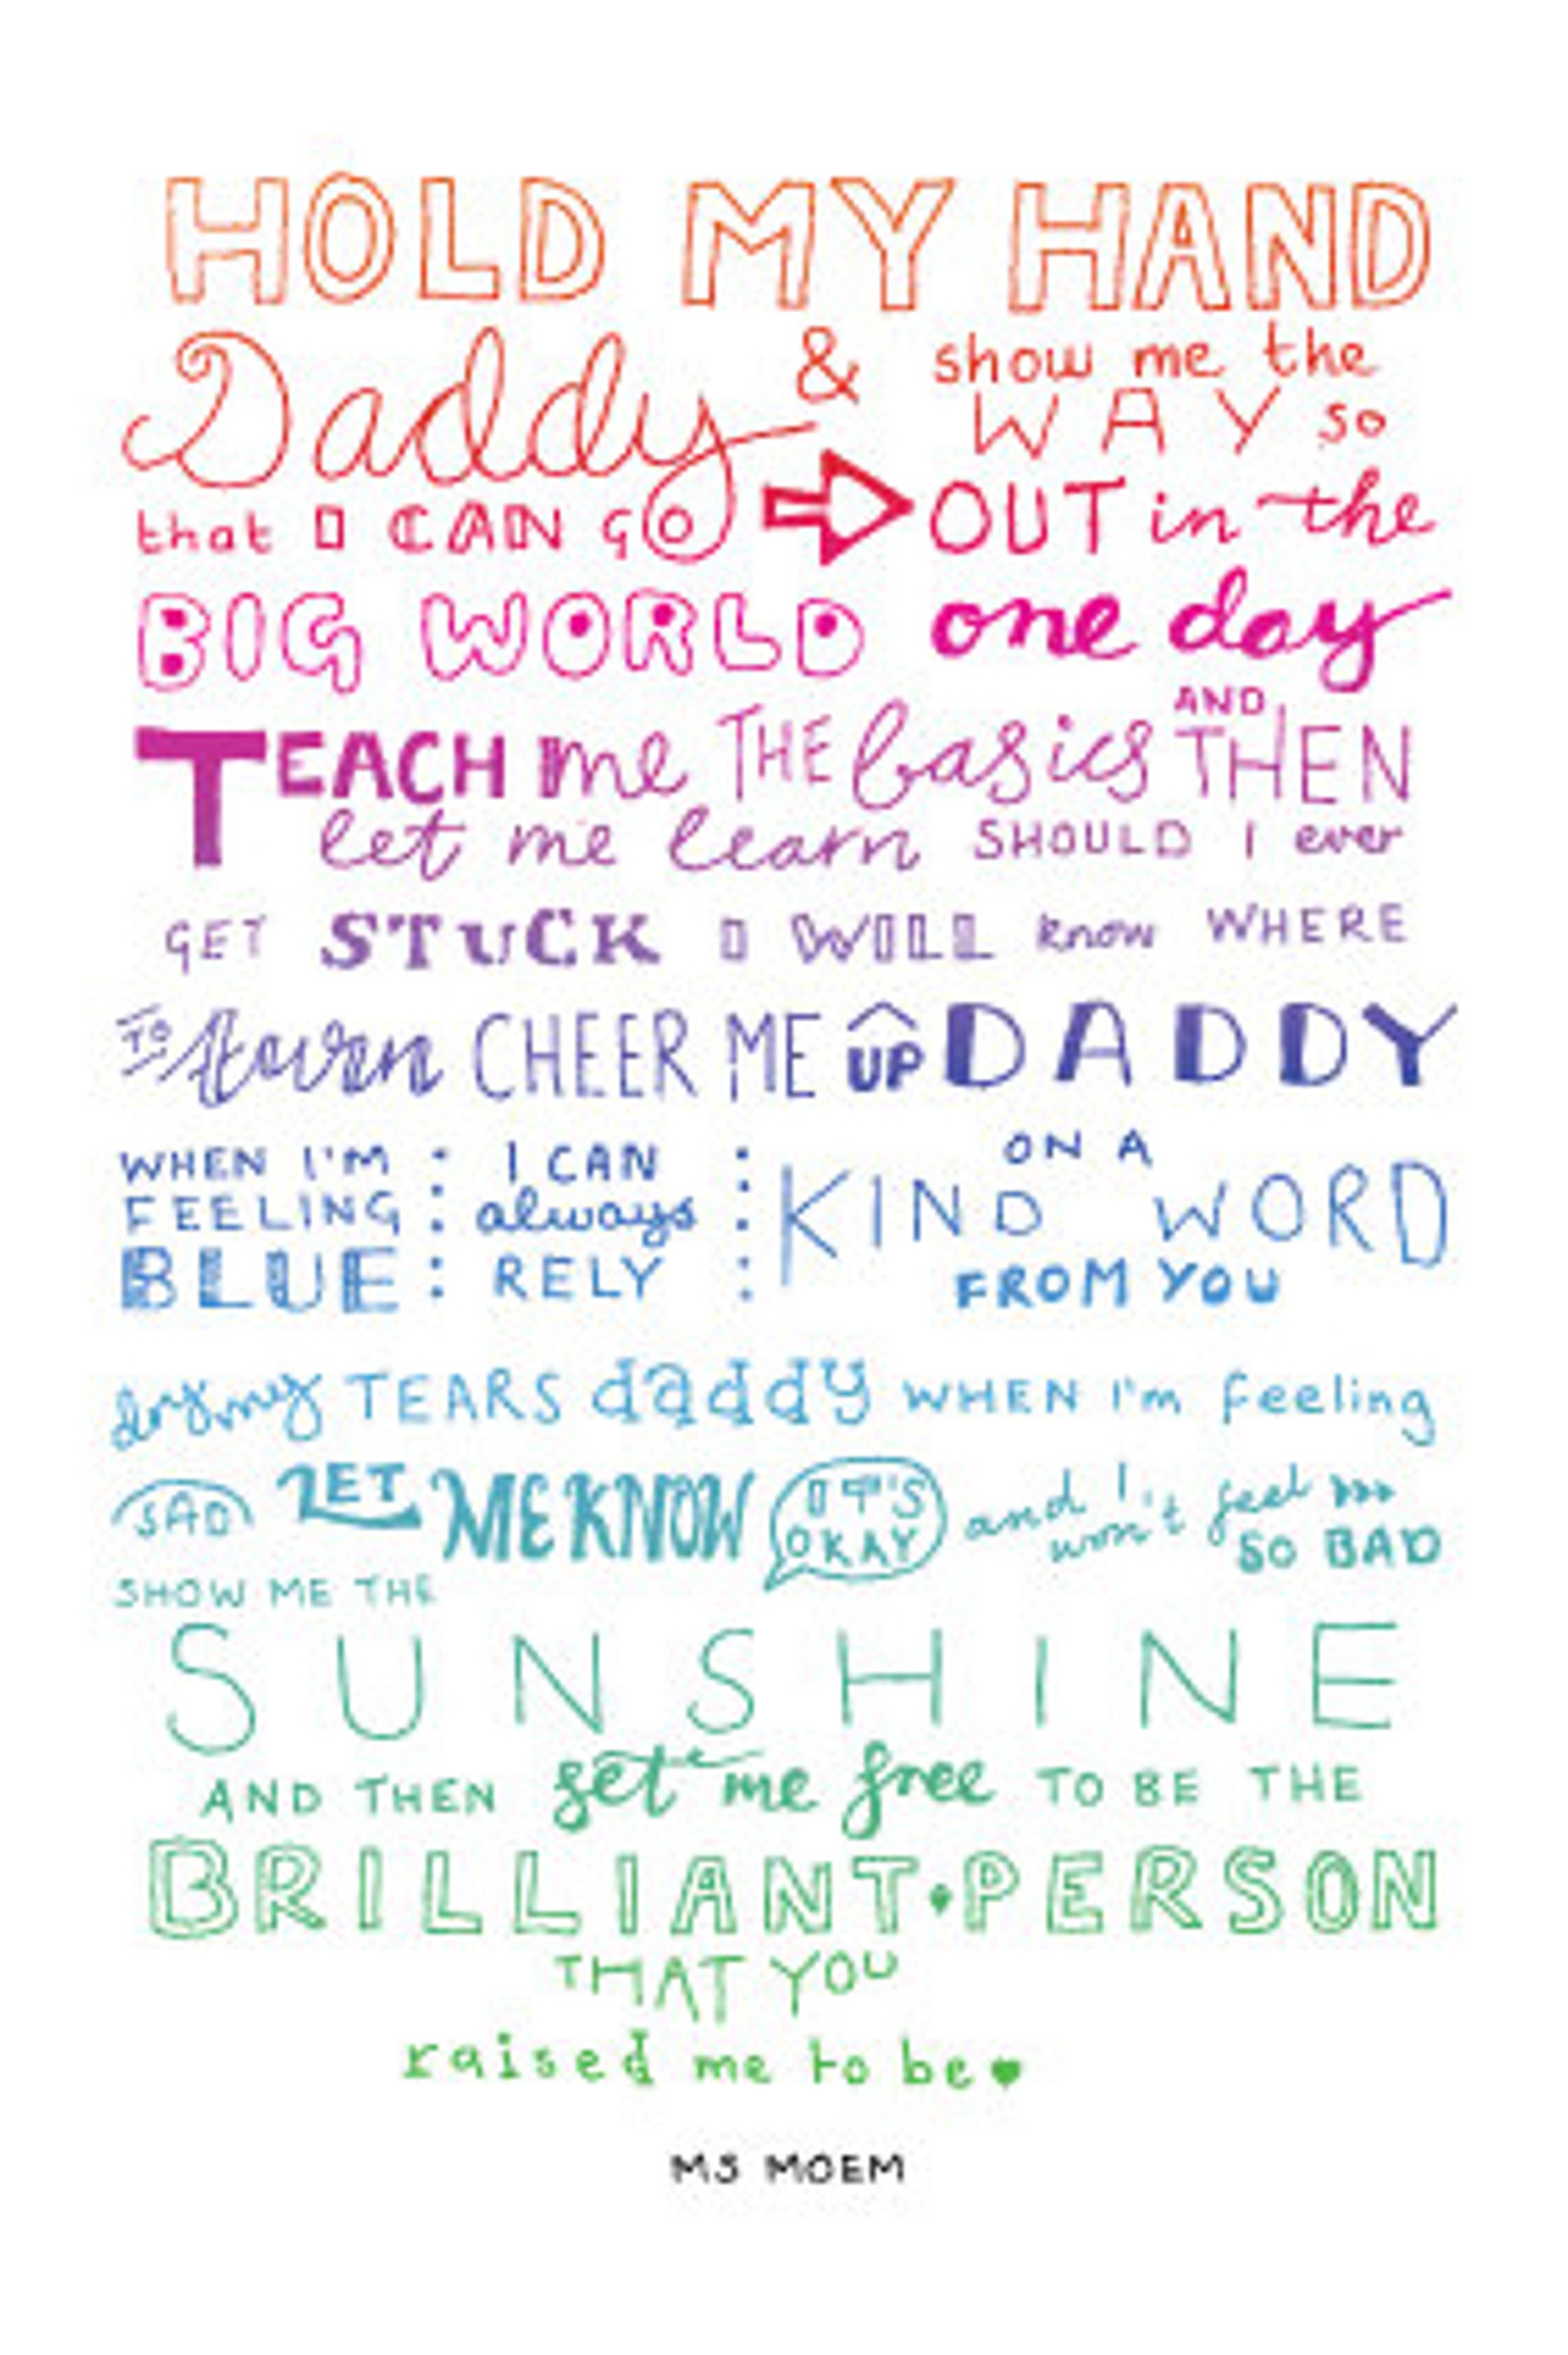 HOLD MY HAND
Daddy & show me the
WAY so
that I CAN GO OUT in the
BIG WORLD one day
TEACH me THE basics AND THEN
let me learn SHOULD I ever
GET STUCK I WILL know WHERE
TO turn CHEER ME UP DADDY
WHEN I'M FEELING BLUE
I CAN always RELY
ON A KIND WORD
FROM YOU
dry my TEARS daddy WHEN I'm feeling
SAD LET ME KNOW IT'S OKAY and I won't feel SO BAD
SHOW ME THE
SUNSHINE
AND THEN set me free TO BE THE
BRILLIANT PERSON
THAT YOU
raised me to be
MS MOEM